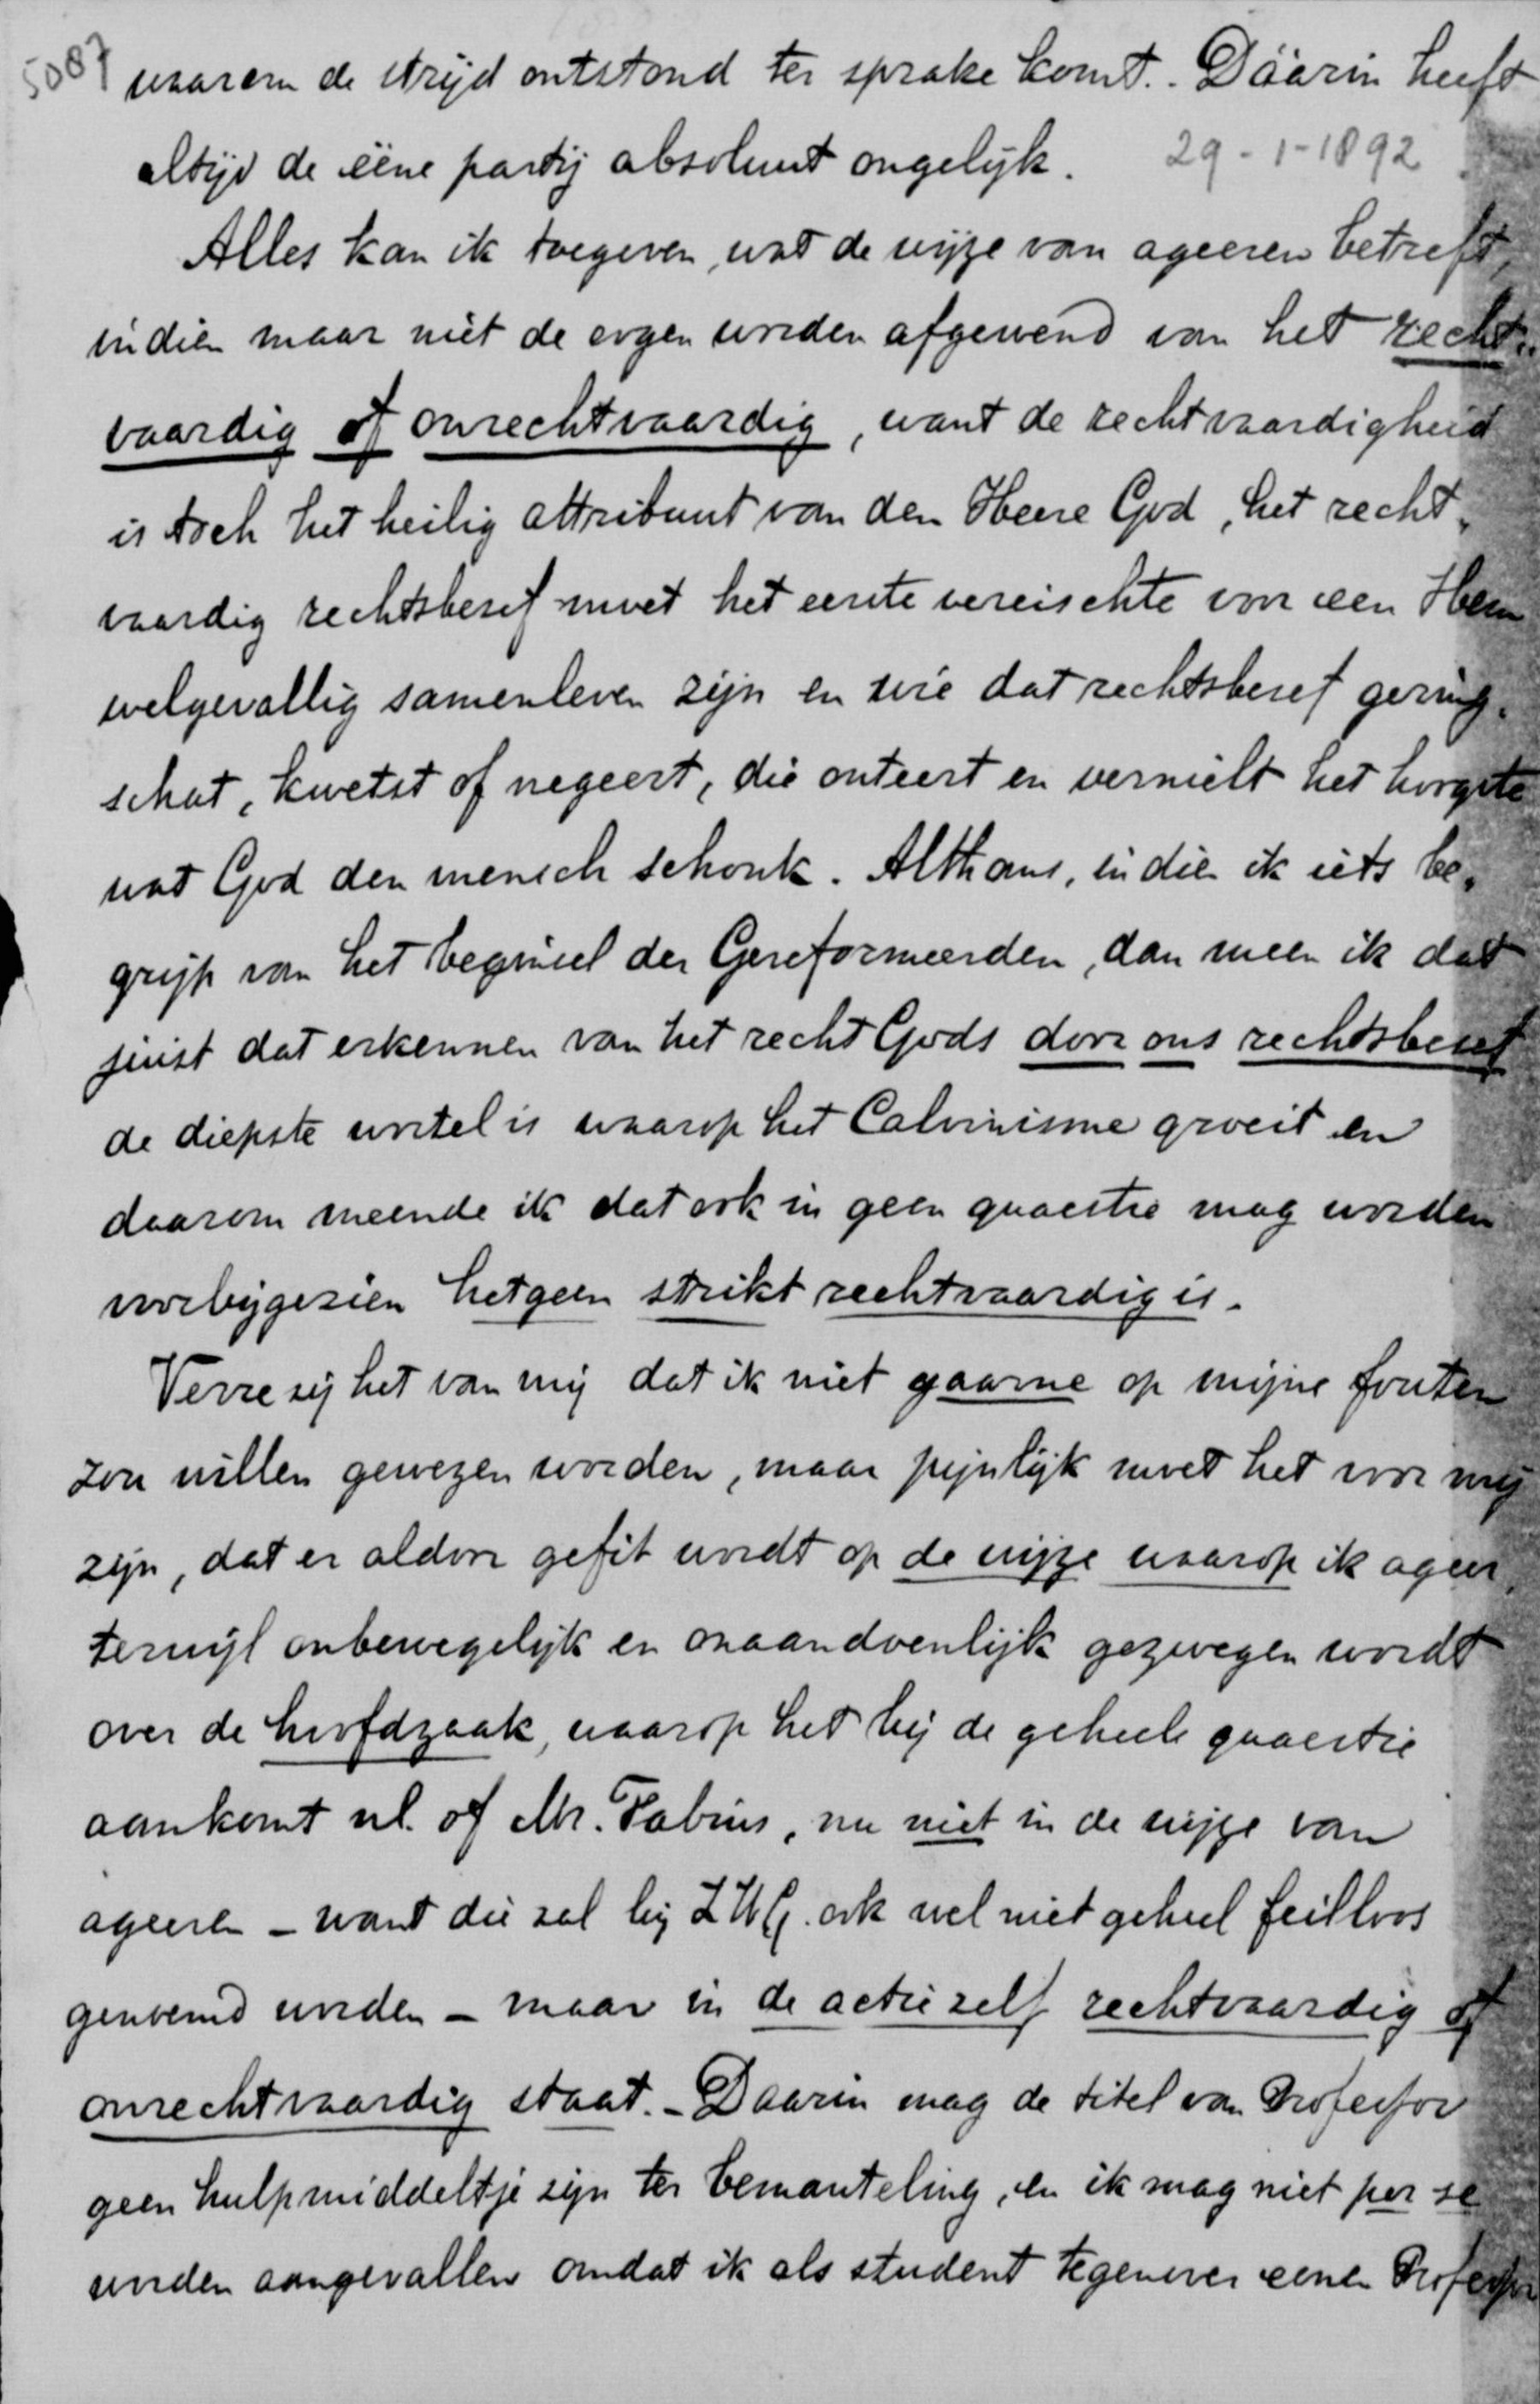 5087 waarom de strijd ontstond ter sprake komt. - Dáárin heeft
altijd de ééne partij absoluut ongelijk. 29-1-1892
Alles kan ik toegeven, wat de wijze van ageeren betreft,
indien maar niet de oogen worden afgewend van het recht-
vaardig of onrechtvaardig, want de rechtvaardigheid
is toch het heilig attribuut van den Heere God, het recht-
vaardig rechtsbesef moet het eerste vereischte voor een Hem
welgevallig samenleven zijn en wie dat rechtsbesef gering-
schat, kwetst of negeert, die onteert en vernielt het hoogste
wat God den mensch schonk. Althans, indien ik iets be-
grijp van het beginsel der Gereformeerden, dan meen ik dat
juist dat erkennen van het recht Gods door ons rechtsbesef
de diepste wortel is waarop het Calvinisme groeit en
daarom meende ik dat ook in geen quaestie mag worden
voorbijgezien hetgeen strikt rechtvaardig is.
Verre zij het van mij dat ik niet gaarne op mijne fouten
zou willen gewezen worden, maar pijnlijk moet het voor mij
zijn, dat er aldoor gefit wordt op de wijze waarop ik ageer,
terwijl onbewegelijk en onaandoenlijk gezwegen wordt
over de hoofdzaak, waarop het bij de geheele quaestie
aankomt nl. of Mr. Fabius, nu niet in de wijze van
ageeren - want die zal bij Z.H.G. ook wel niet geheel feilloos
genoemd worden - maar in de actie zelf rechtvaardig of
onrechtvaardig staat. - Daarin mag de titel van Professor
geen hulpmiddeltje zijn ter bemanteling, en ik mag niet per se
worden aangevallen omdat ik als student tegenover eenen Professor